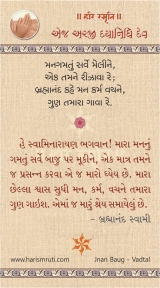 ॥ હરિ સ્મૃતિ ॥
એજ અરજી દયાનિધિ દેવ
મનગમતું સર્વે મેલીને,
એક તમને રીઝાવા રે;
બ્રહ્માનંદ કહે મન કર્મ વચને,
ગુણ તમારા ગાવા રે.
હે સ્વામિનારાયણ ભગવાન! મારા મનનું
ગમતું સર્વ બાજુ પર મૂકીને, એક માત્ર તમને
જ પ્રસન્ન કરવા એ જ મારો ધ્યેય છે. મારા
છેલ્લા શ્વાસ સુધી મન, કર્મ, વચને તમારા
ગુણ ગાઇશ. એમાં જ મારું શ્રેય સમાયેલું છે.
- બ્રહ્માનંદ સ્વામી
www.harismruti.com Jnan Baug - Vadtal